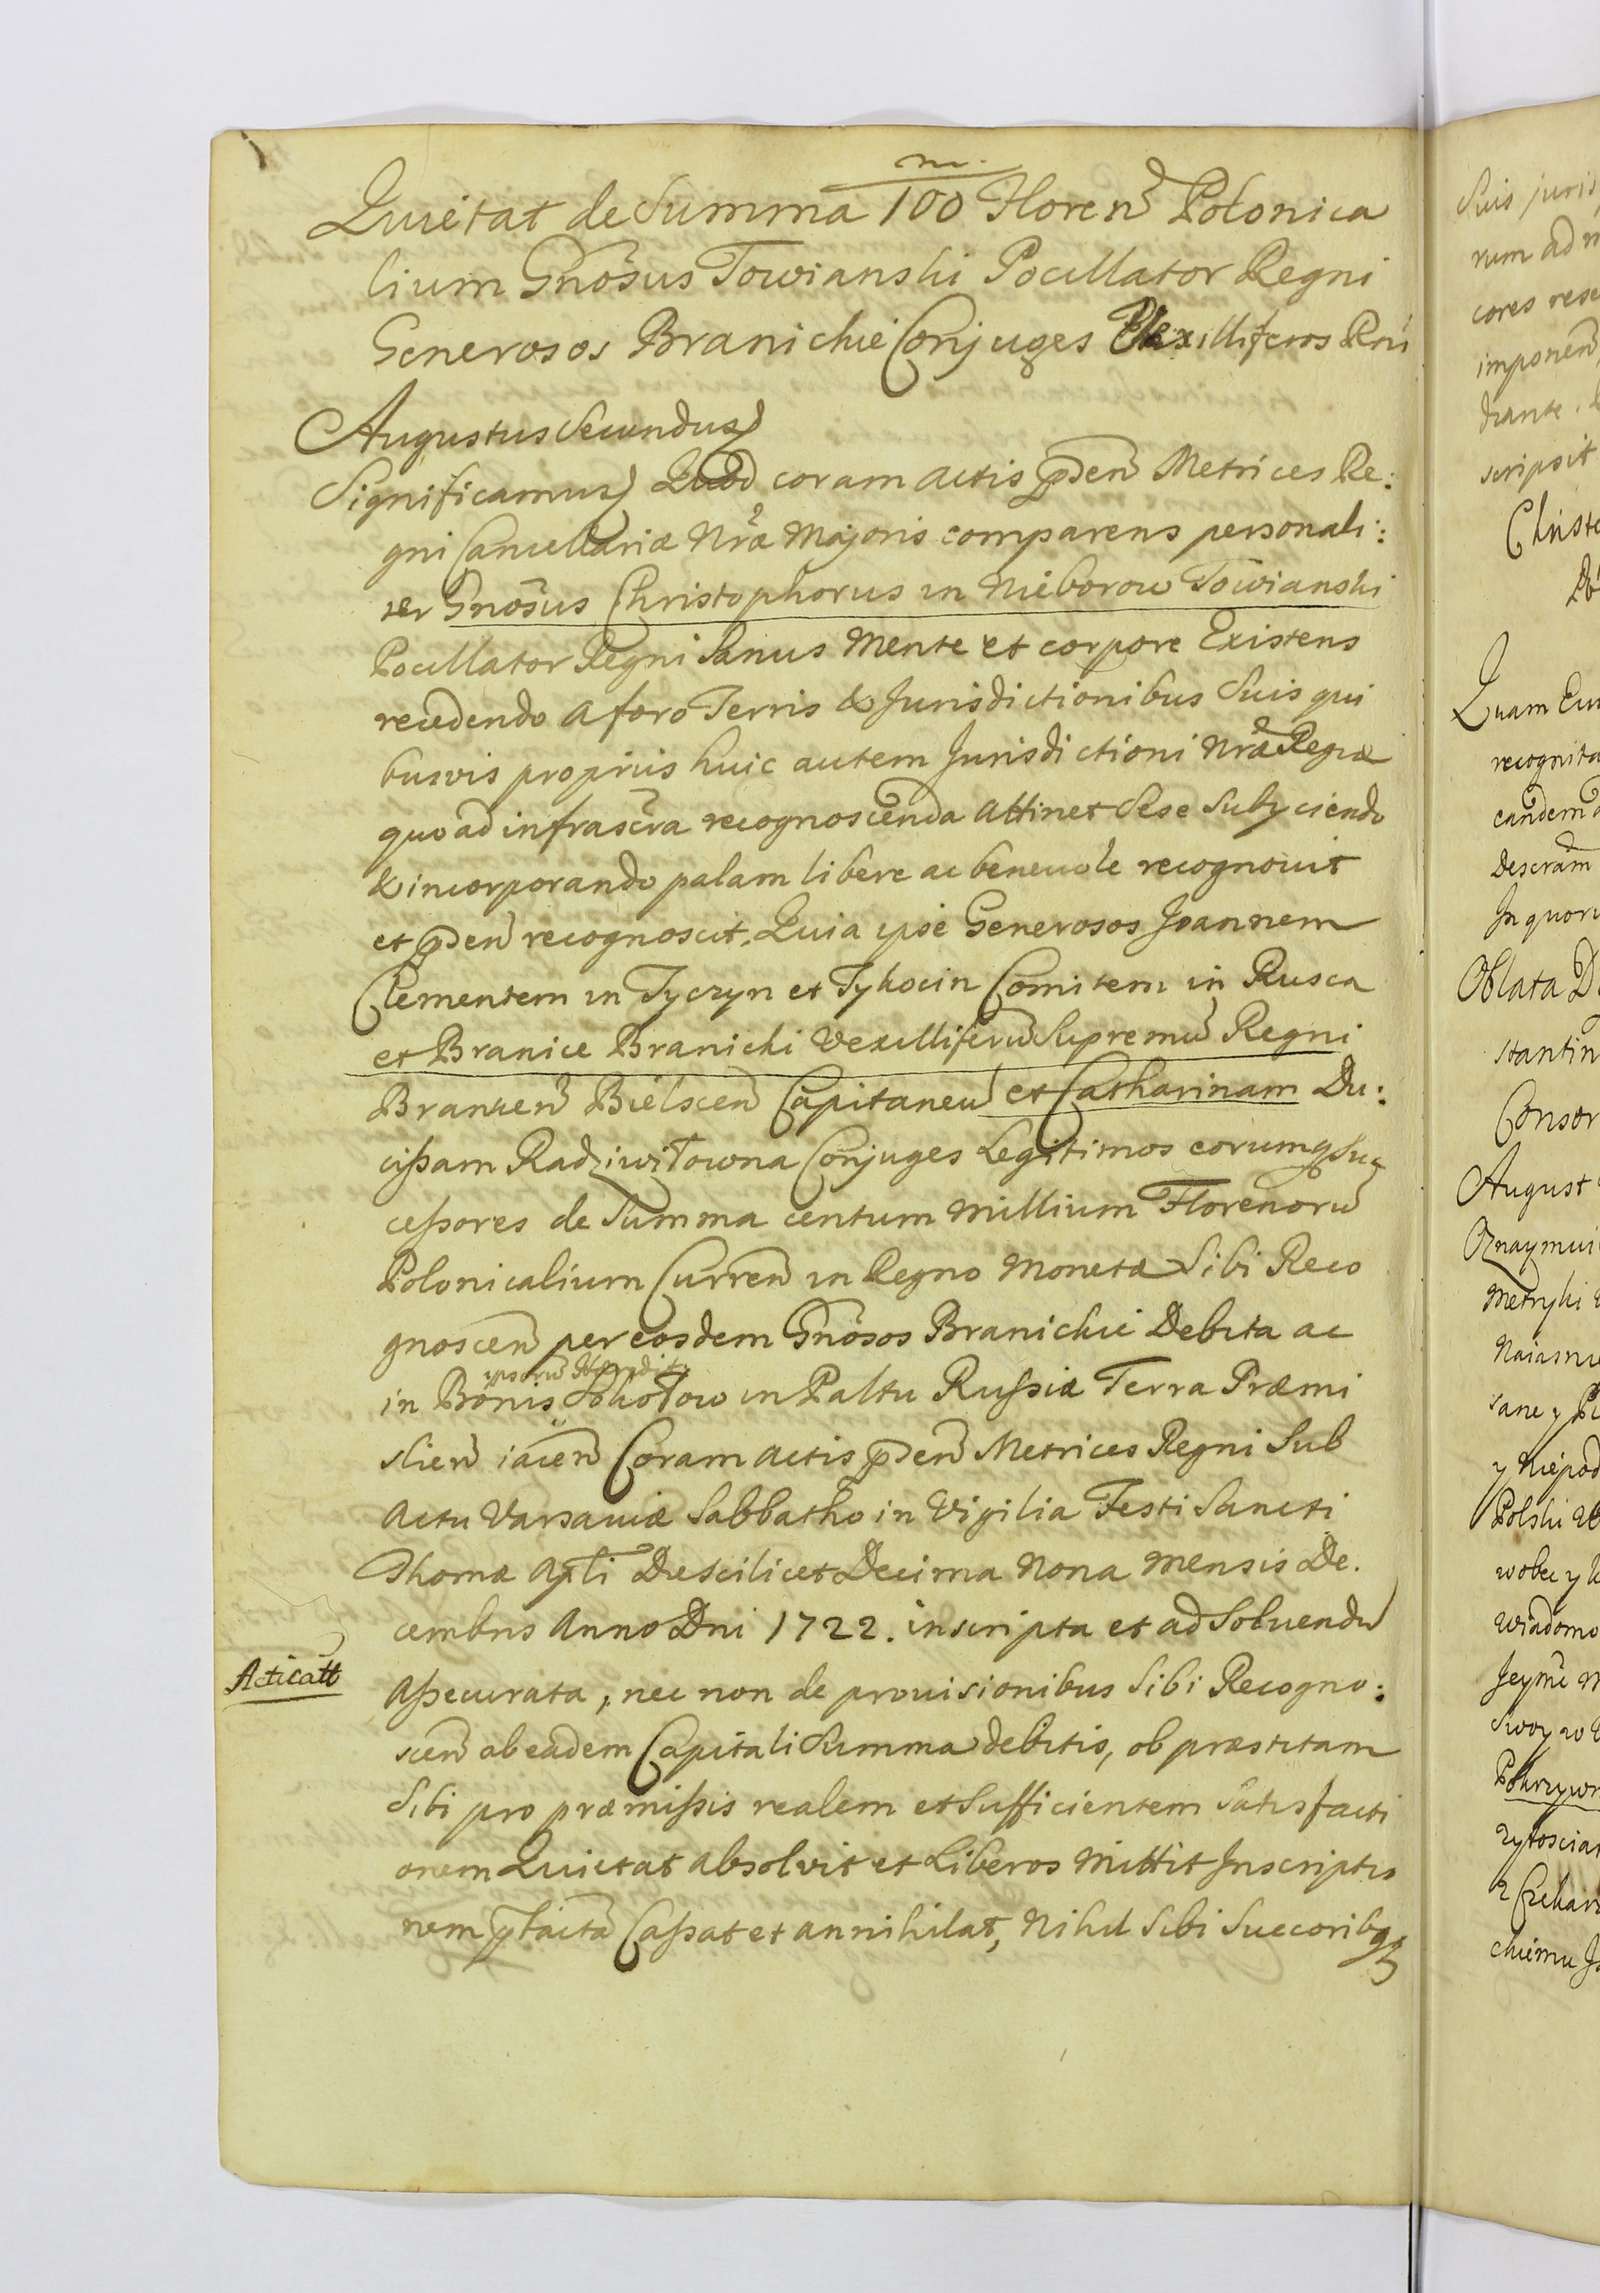 m.
Quietat de Summa 100 Floren Polonica
lium Gnosus Towianski Pocillator Regni
Generosos Branickie Conjuges Vexilliferos Rni
Augustus Secundus
Significamus Quod coram actis pden Metrices Re:
gni Cancellariæ Nræ Majoris comparens personali:
ter Gnosus Christophorus in Nieborow Towianski
Pocillator Regni Sanus Mente et corpore Existens
recedendo a foro Terris & Jurisdictionibus Suis qui
busvis proprijs huic autem Jurisdictioni Nræ Regiæ
quo ad infrascra recognoscenda attinet Sese Subijciendo
& incorporando palam libere ac benevole recognovit
et pden recognoscit, Quia ipse Generosos Joannem
Clementem in Tyczyn et Tykocin Comitem in Rusca
et Branice Branicki Vexilliferu Supremu Regni
Brancen Bielscen Capitaneu et Catharinam Du:
cißam Radziwiłowna Conjuges Legitimos eorumq Suc
ceßores de Summa centum Millium Florenoru
Polonicalium Curren in Regno Monetæ Sibi Reco
gnoscen per eosdem Gnosos Branickie Debita ac
ipsoru Hæredit.
in Bonis Sokołow in Paltu Rußiæ Terra Præmi
slien iacen Coram actis pden Metrices Regni Sub
Actu Varsaviæ Sabbatho in Vigilia Festi Sancti
Thomæ Apli Die scilicet Decima Nona Mensis De.
cembris Anno Dni 1722. inscripta et ad Solvendu
Acticatt
Aßecurata, nec non de provisionibus Sibi Recogno:
scen ab eadem Capitali Summa debitis, ob præstitam
Sibi pro præmißis realem et Sufficientem Satisfacti
onem Quietat absolvit et Liberos Mittit Inscriptio
nem ptacta Caßat et annihilat, Nihil Sibi Succoribq
Suis juris
rum ad
cores rese
imponen
diante.
scripsit
Christo
Quam
recognita
eandem
Descram
In quoru
Oblata
stantin
Consor
August
Oznaymui
Metryki
Naiasnie
sane y
y Niepod
Polski
wobec y
wiadomo
Jeymc
Swoy
Pokrzyw